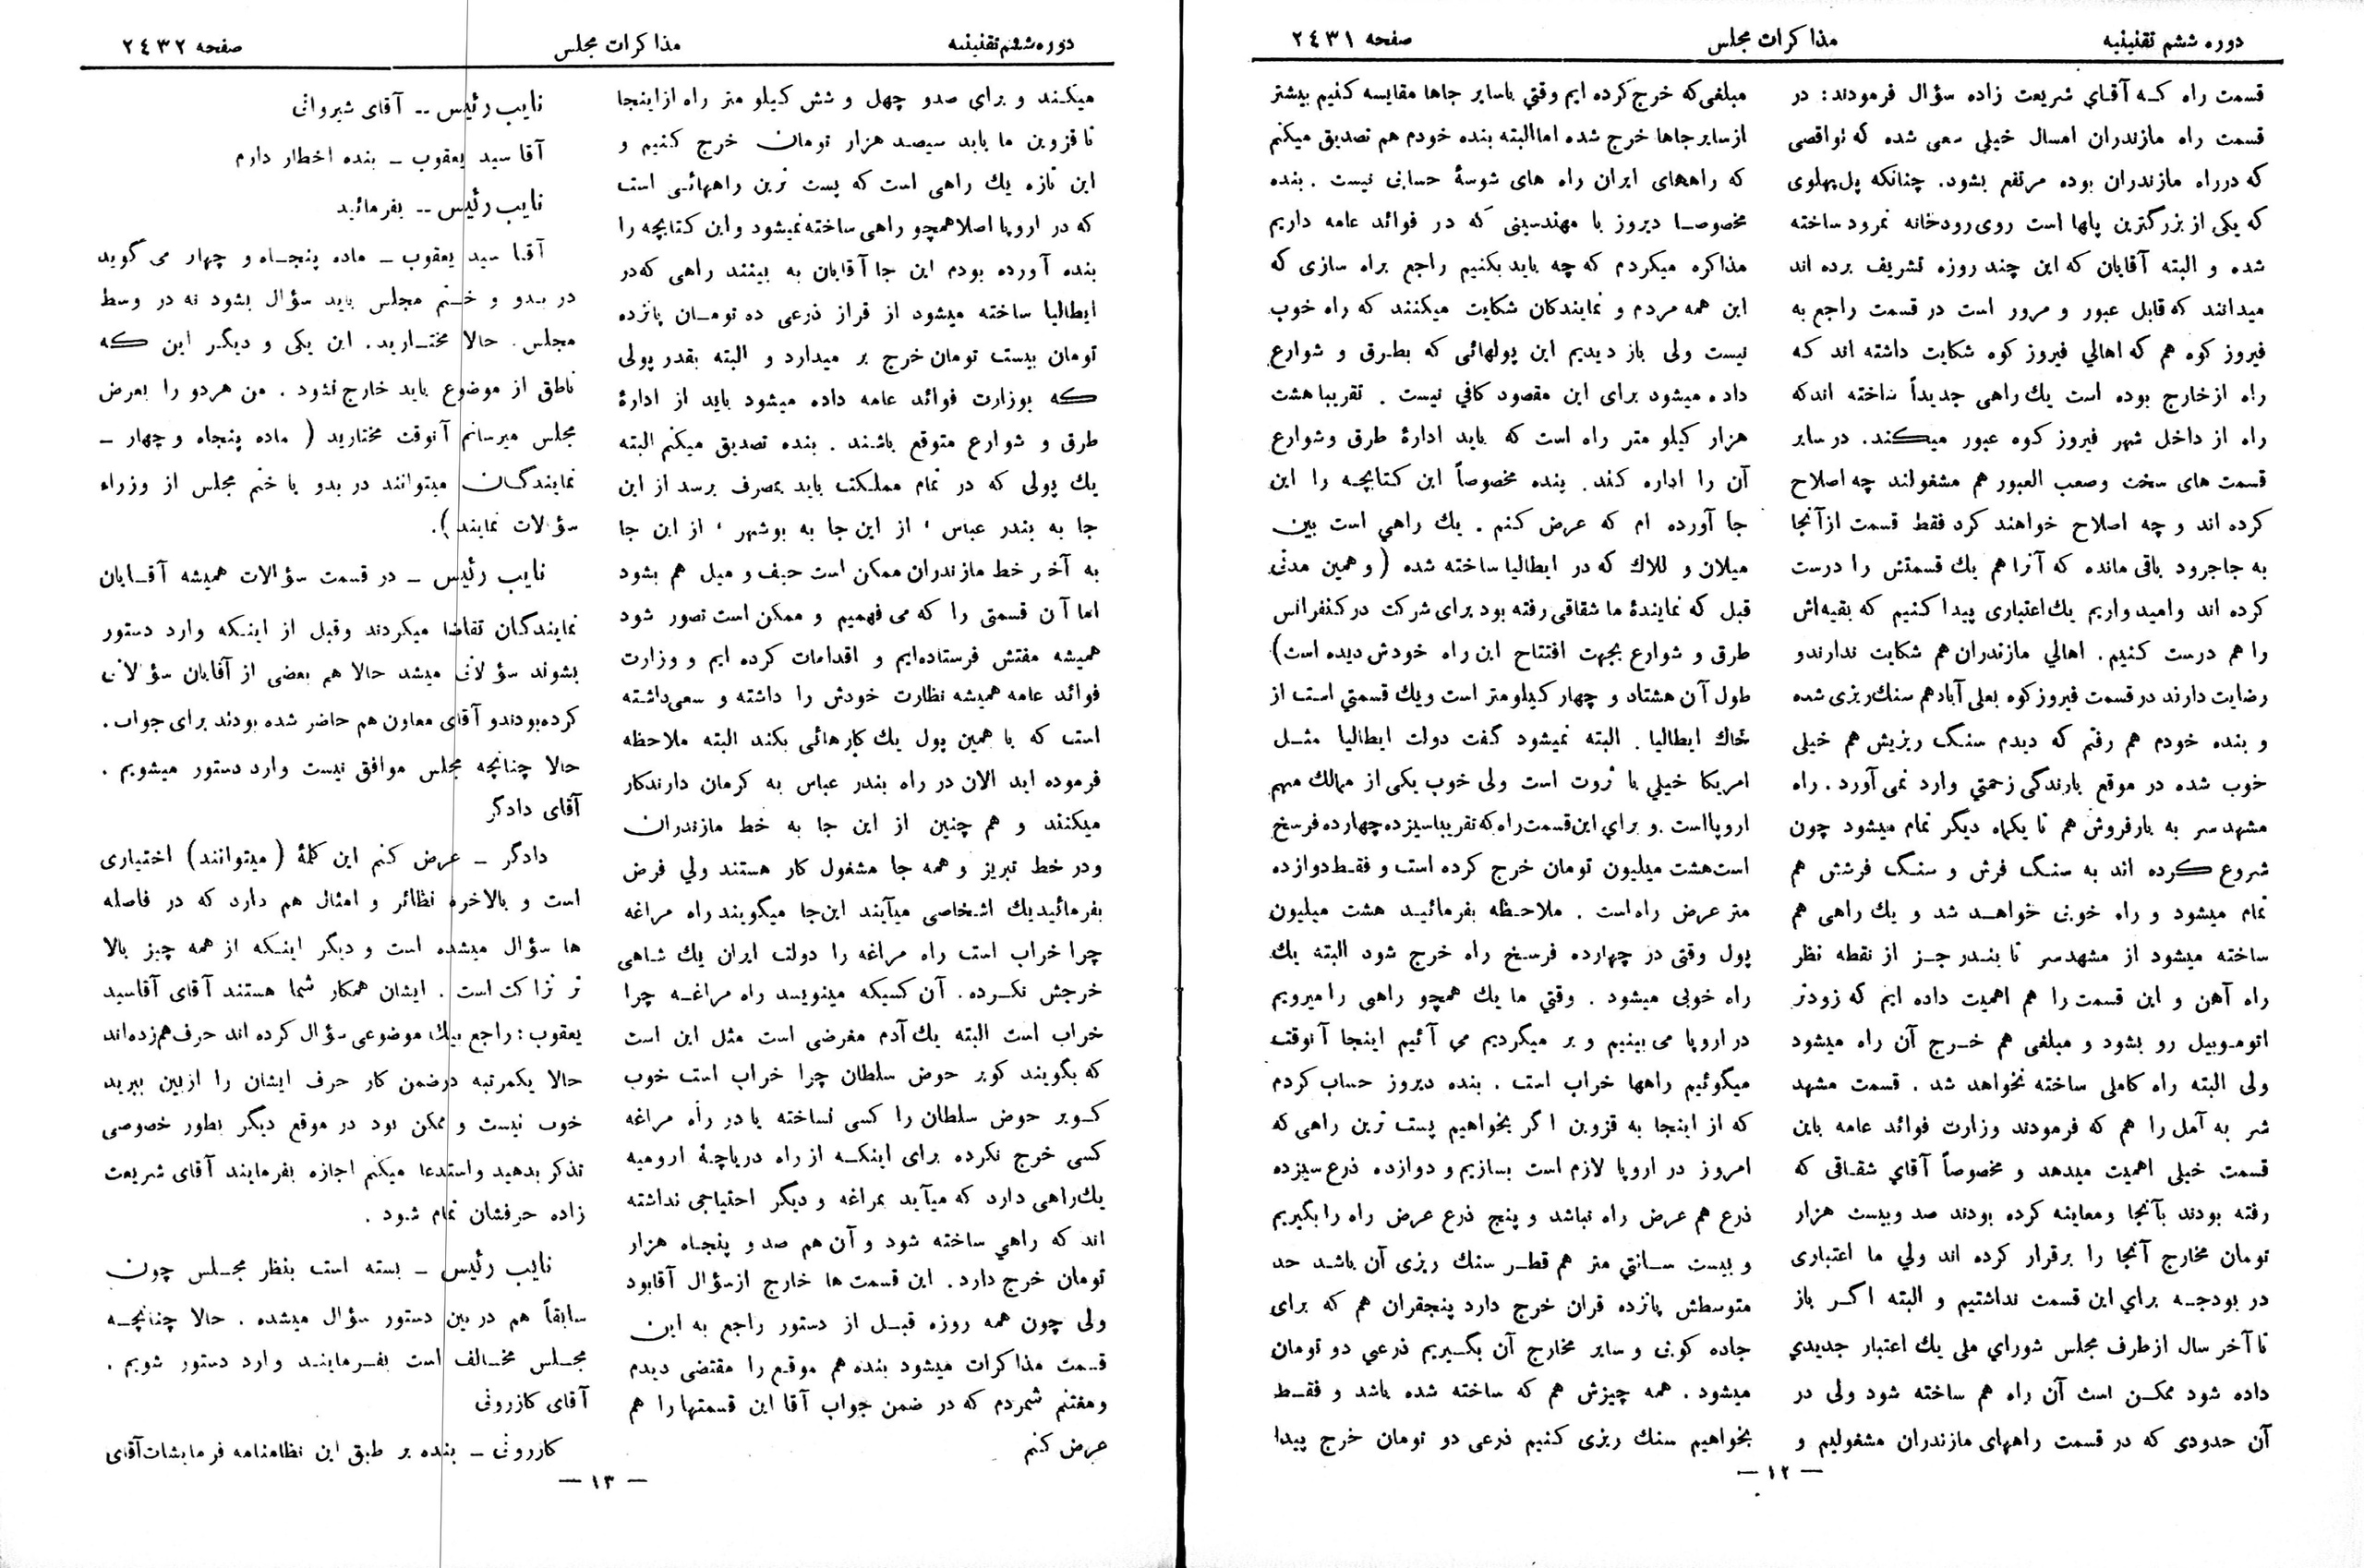 دوره ششم تقنینیه
مذاکرات مجلس
صفحه ۲٤۳۱
قسمت راه که آقای شریعت زاده سؤال فرمودند: در
قسمت راه مازندران امسال خیلی سعی شده که نواقصی
که درراه مازندران بوده مرتفع بشود. چنانکه پل پهلوی
که یکی از بزرگترین پلها است روی رودخانه نمرود ساخته
شده و البته آقایان که این چند روزه تشریف برده اند
میدانند که قابل عبور و مرور است در قسمت راجع به
فیروز کوه هم که اهالي فیروز کوه شکایت داشته اند که
راه ازخارج بوده است یك راهی جدیداً ساخته اندکه
راه از داخل شهر فیروز کوه عبور میکند. در سایر
قسمت های سخت وصعب العبور هم مشغولند چه اصلاح
کرده اند و چه اصلاح خواهند کرد فقط قسمت ازآنجا
به جاجرود باقی مانده که آنرا هم یك قسمتش را درست
کرده اند وامیدواریم یك اعتباری پیدا کنیم که بقیه اش
را هم درست کنیم. اهالي مازندران هم شکایت ندارندو
رضایت دارند در قسمت فیروز کوه بعلی آبادهم سنك ریزی شده
و بنده خودم هم رفتم که دیدم سنگ ریزیش هم خیلی
خوب شده در موقع بارندگی زحمتي وارد نمی آورد. راه
مشهدسر به بارفروش هم تا یکماه دیگر تمام میشود چون
شروع کرده اند به سنگ فرش و سنگ فرشش هم
تمام میشود و راه خوبی خواهد شد و یك راهی هم
ساخته میشود از مشهدسر تا بندر جز از نقطه نظر
راه آهن و این قسمت را هم اهمیت داده ایم که زودتر
اتوموبیل رو بشود و مبلغی هم خرج آن راه میشود
ولی البته راه کاملی ساخته نخواهد شد. قسمت مشهد
سر به آمل را هم که فرمودند وزارت فوائد عامه باین
قسمت خیلی اهمیت میدهد و مخصوصاً آقاي شقاقی که
رفته بودند بآنجا ومعاینه کرده بودند صد وبیست هزار
تومان مخارج آنجا را برقرار کرده اند ولي ما اعتباری
در بودجه براي این قسمت نداشتیم و البته اگر باز
تا آخر سال ازطرف مجلس شورای ملی یك اعتبار جدیدي
داده شود ممکن است آن راه هم ساخته شود ولی در
آن حدودی که در قسمت راههای مازندران مشغولیم و
مبلغی که خرج کرده ایم وقتي باسایر جاها مقایسه کنیم بیشتر
ازسایر جاها خرج شده اما البته بنده خودم هم تصدیق میکنم
که راههای ایران راه های شوسهٔ حسابی نیست. بنده
مخصوصا دیروز با مهندسینی که در فوائد عامه داریم
مذاکره میکردم که چه باید بکنیم راجع براه سازی که
این همه مردم و نمایندگان شکایت میکنند که راه خوب
نیست ولی باز دیدیم این پولهائی که بطرق و شوارع
داده میشود برای این مقصود کافي نیست. تقریبا هشت
هزار کیلو متر راه است که باید ادارهٔ طرق وشوارع
آن را اداره کند. بنده مخصوصاً این کتابچه را این
جا آورده ام که عرض کنم. یك راهي است بین
میلان و للاك که در ایطالیا ساخته شده (و همین مدتی
قبل که نمایندهٔ ما شقاقی رفته بود برای شرکت در کنفرانس
طرق و شوارع بجهت افتتاح این راه خودش دیده است)
طول آن هشتاد و چهار کیلومتر است ویك قسمتي است از
خاك ایطالیا. البته نمیشود گفت دولت ایطالیا مثل
امریکا خیلي با ثروت است ولی خوب یکی از ممالك مهم
اروپااست و براي این قسمت راه که تقریبا سیزده چهارده فرسخ
است هشت میلیون تومان خرج کرده است و فقط دوازده
متر عرض راه است. ملاحظه بفرمائید هشت میلیون
پول وقتی در چهارده فرسخ راه خرج شود البته یك
راه خوبی میشود. وقتي ما یك همچو راهی را میرویم
در اروپا می بینیم و بر میگردیم مي آئیم اینجا آنوقت
میگوئیم راهها خراب است. بنده دیروز حساب کردم
که از اینجا به قزوین اگر بخواهیم پست ترین راهی که
امروز در اروپا لازم است بسازیم و دوازده ذرع سیزده
ذرع هم عرض راه نباشد و پنج ذرع عرض راه را بگیریم
و بیست سانتي متر هم قطر سنك ریزی آن باشد حد
متوسطش پانزده قران خرج دارد پنجقران هم که برای
جاده کوبی و سایر مخارج آن بگیریم ذرعي دو تومان
میشود. همه چیزش هم که ساخته شده باشد و فقط
بخواهیم سنك ریزی کنیم ذرعی دو تومان خرج پیدا
— ۱۲ —
دوره ششم تقنینیه
مذاکرات مجلس
صفحه ۲٤۳۲
میکند و برای صدو چهل و شش کیلو متر راه ازاینجا
تا قزوین ما باید سیصد هزار تومان خرج کنیم و
این تازه یك راهی است که پست ترین راههائی است
که در اروپا اصلا همچو راهی ساخته نمیشود واین کتابچه را
بنده آورده بودم این جا آقایان به بینند راهی که در
ایطالیا ساخته میشود از قرار ذرعی ده تومان پانزده
تومان بیست تومان خرج بر میدارد و البته بقدر پولی
که بوزارت فوائد عامه داده میشود باید از ادارهٔ
طرق و شوارع متوقع باشند. بنده تصدیق میکنم البته
یك پولی که در تمام مملکت باید بمصرف برسد از این
جا به بندر عباس، از این جا به بوشهر، از این جا
به آخر خط مازندران ممکن است حیف و میل هم بشود
اما آن قسمتی را که می فهمیم و ممکن است تصور شود
همیشه مفتش فرستاده ایم و اقدامات کرده ایم و وزارت
فوائد عامه همیشه نظارت خودش را داشته و سعی داشته
است که با همین پول یك کارهائی بکند البته ملاحظه
فرموده اید الان در راه بندر عباس به کرمان دارندکار
میکنند و هم چنین از این جا به خط مازندران
ودر خط تبریز و همه جا مشغول کار هستند ولي فرض
بفرمائید یك اشخاصی میآیند این جا میگویند راه مراغه
چرا خراب است راه مراغه را دولت ایران یك شاهی
خرجش نکرده. آن کسیکه مینویسد راه مراغه چرا
خراب است البته یك آدم مغرضی است مثل این است
که بگویند کویر حوض سلطان چرا خراب است خوب
کویر حوض سلطان را کسی نساخته یا در راه مراغه
کسی خرج نکرده برای اینکه از راه دریاچهٔ ارومیه
یك راهی دارد که میآید بمراغه و دیگر احتیاجی نداشته
اند که راهي ساخته شود و آن هم صد و پنجاه هزار
تومان خرج دارد. این قسمت ها خارج ازسؤال آقابود
ولی چون همه روزه قبل از دستور راجع به این
قسمت مذاکرات میشود بنده هم موقع را مقتضی دیدم
ومغتنم شمردم که در ضمن جواب آقا این قسمتها را هم
عرض کنم
نایب رئیس -- آقای شیروانی
آقا سید یعقوب - بنده اخطار دارم
نایب رئیس -- بفرمائید
آقا سید یعقوب - ماده پنجاه و چهار می گوید
در بدو و ختم مجلس باید سؤال بشود نه در وسط
مجلس. حالا مختارید. این یکی و دیگر این که
ناطق از موضوع باید خارج نشود. من هردو را بعرض
مجلس میرسانم آنوقت مختارید (ماده پنجاه و چهار -
نمایندگان میتوانند در بدو یا ختم مجلس از وزراء
سؤالات نمایند).
نایب رئیس - در قسمت سؤالات همیشه آقایان
نمایندگان تقاضا میکردند وقبل از اینکه وارد دستور
بشوند سؤالات میشد حالا هم بعضی از آقایان سؤالاتی
کرده بودندو آقای معاون هم حاضر شده بودند برای جواب.
حالا چنانچه مجلس موافق نیست وارد دستور میشویم.
آقای دادگر
دادگر - عرض کنم این کلمهٔ (میتوانند) اختیاری
است و بالاخره نظائر و امثال هم دارد که در فاصله
ها سؤال میشده است و دیگر اینکه از همه چیز بالا
تر نزاکت است. ایشان همکار شما هستند آقای آقاسید
یعقوب: راجع بیك موضوعی سؤال کرده اند حرف هم زده اند
حالا یکمرتبه درضمن کار حرف ایشان را ازبین ببرید
خوب نیست و ممکن بود در موقع دیگر بطور خصوصی
تذکر بدهید واستدعا میکنم اجازه بفرمایند آقای شریعت
زاده حرفشان تمام شود.
نایب رئیس - بسته است بنظر مجلس چون
سابقاً هم در بین دستور سؤال میشده. حالا چنانچه
مجلس مخالف است بفرمایند وارد دستور شویم.
آقای کازرونی
کازرونی - بنده بر طبق این نظامنامه فرمایشات آقای
— ۱۳ —